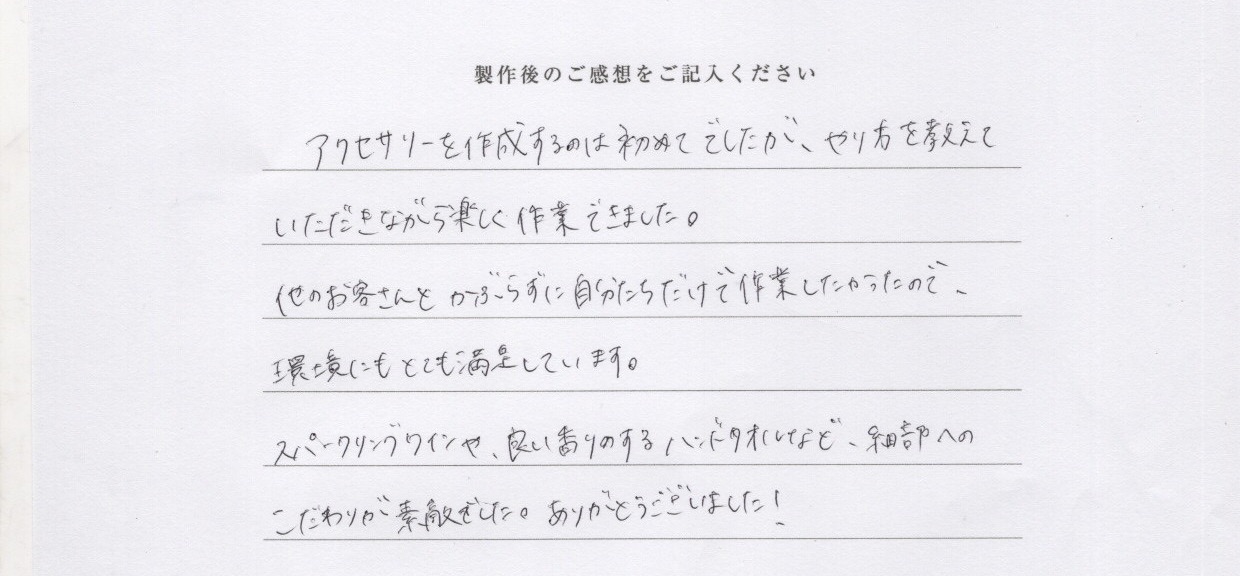 製作後のご感想をご記入ください
アクセサリーを作成するのは初めてでしたが、やり方を教えて
いただきながら楽しく作業できました。
他のお客さんとかぶらずに自分たちだけで作業したかったので、
環境にもとても満足しています。
スパークリングワインや、良い香りのするハンドタオルなど、細部への
こだわりが素敵でした。ありがとうございました!